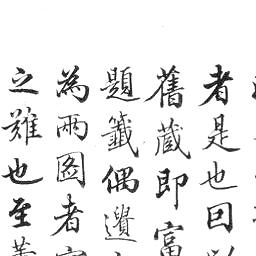 者是也回
舊蔵即富
題籤偶遺
為兩图者
之雖也至